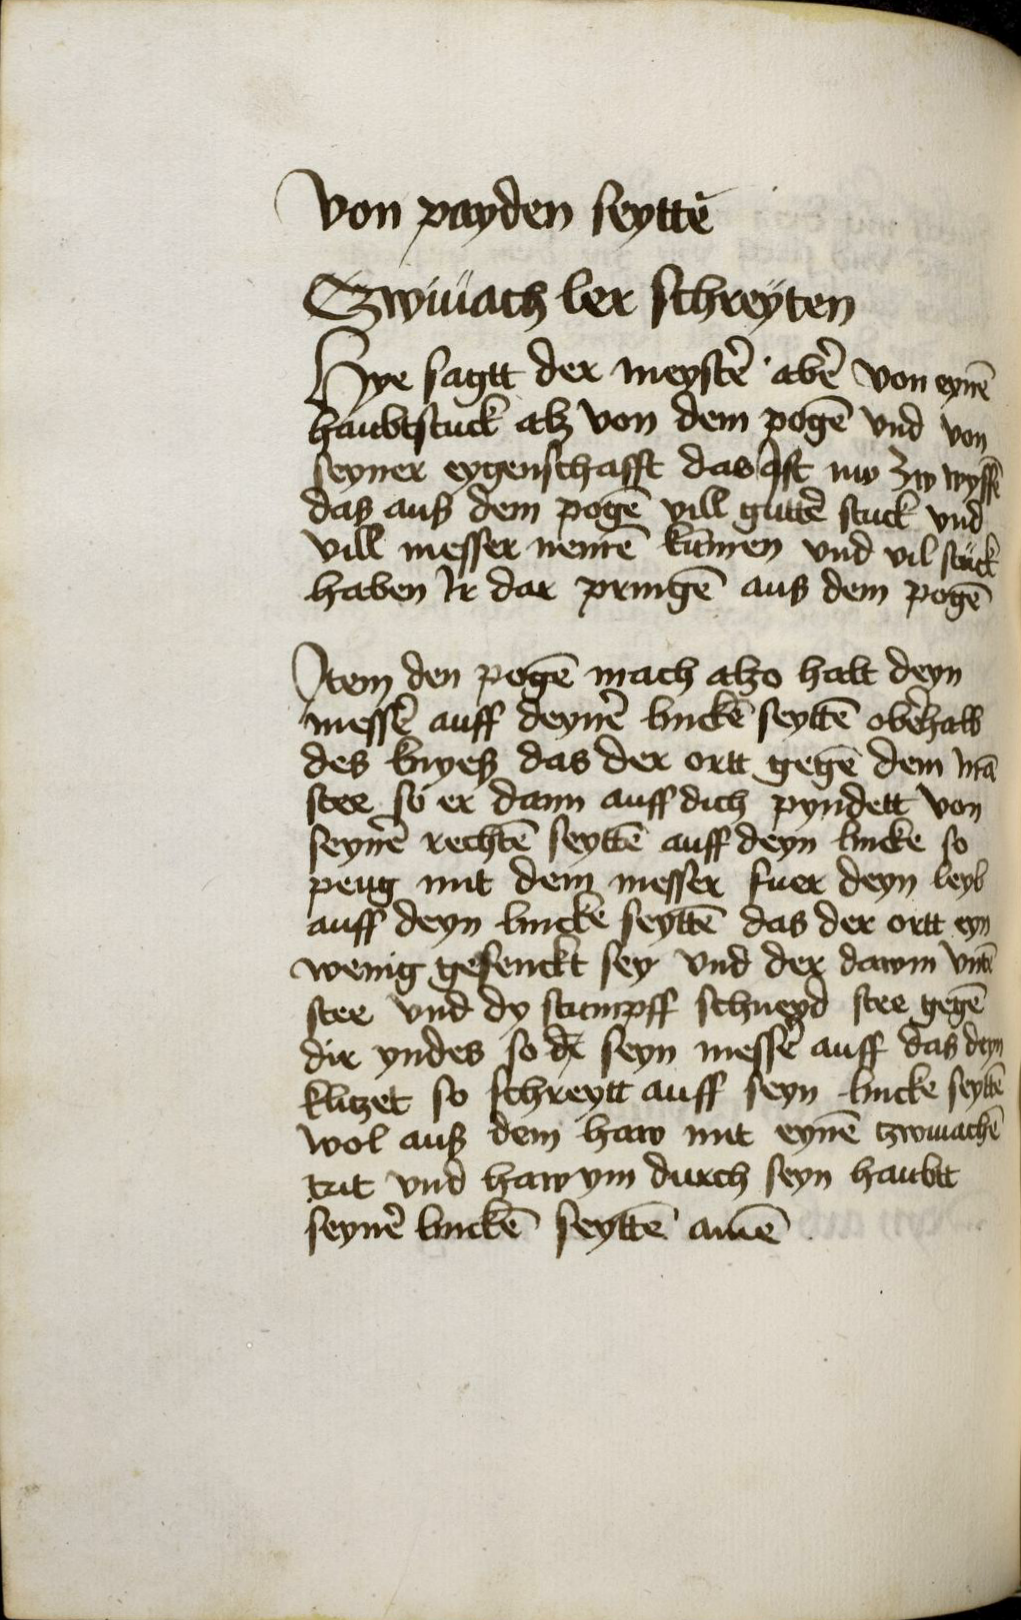 Von payden seyttē
Tzwiuach ler schreyten
Hye sagtt der meystē abē von eynē
haubtstuck alß von dem pogē vnd von
seyner eygenschafft das Ist nw zw wyssē
das auß dem pogē vill guttē stuck vnd
vill messer nemē kūmen vnd vil stuck
haben Ir dar pringē auß dem pogē
Item den pogē mach alzo halt deyn
messē auff deynē linckē seyttē obēhalb
des knyeß das der ortt gegē dem mā
stee so er dann auff dich pyndett von
seynē rechtē seyttē auff deyn lincke so
peug mit dem messer fuer deyn leyb
auff deyn lincke seyttē das der ortt eyn
wenig gesenckt sey vnd der dawm vntē
stee vnd dy stumpff schneyd stee gegē
dir yndes so er seyn messē auff das deyn
klitzet so schreytt auff seyn lincke seyttē
wol auß dem haw mit eynē tzwiuachē
trit vnd haw ym durch seyn haubtt
seynē linckē seyttē amē